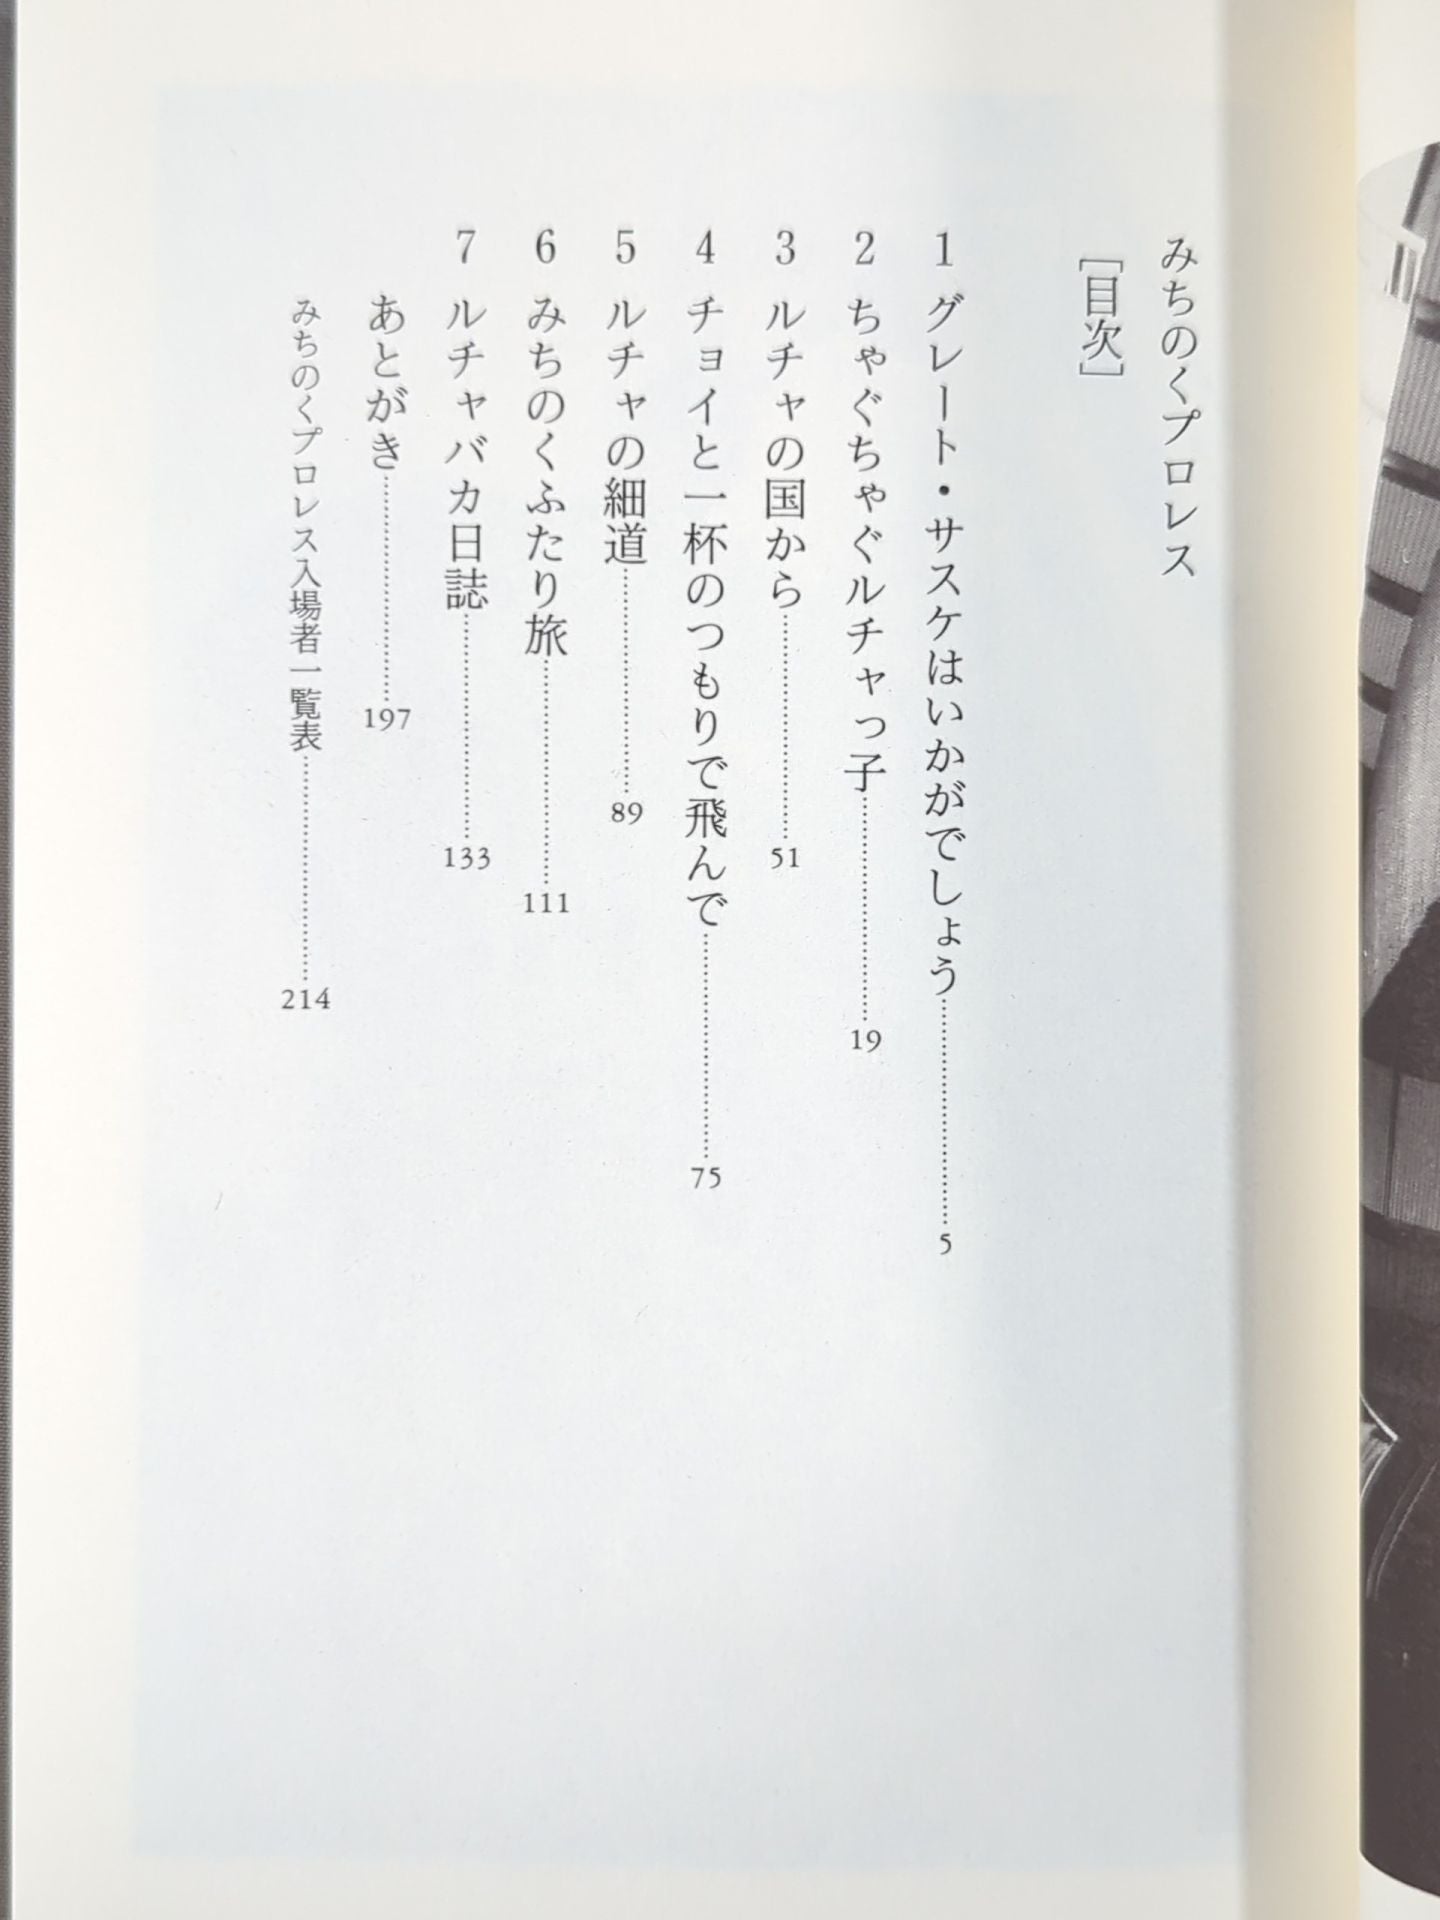 みちのくプロレス
［目次］
1 グレート・サスケはいかがでしょう……………5
2 ちゃぐちゃぐルチャっ子……………19
3 ルチャの国から……………51
4 チョイと一杯のつもりで飛んで……………75
5 ルチャの細道……………89
6 みちのくふたり旅……………111
7 ルチャバカ日誌……………133
あとがき……………197
みちのくプロレス入場者一覧表……………214